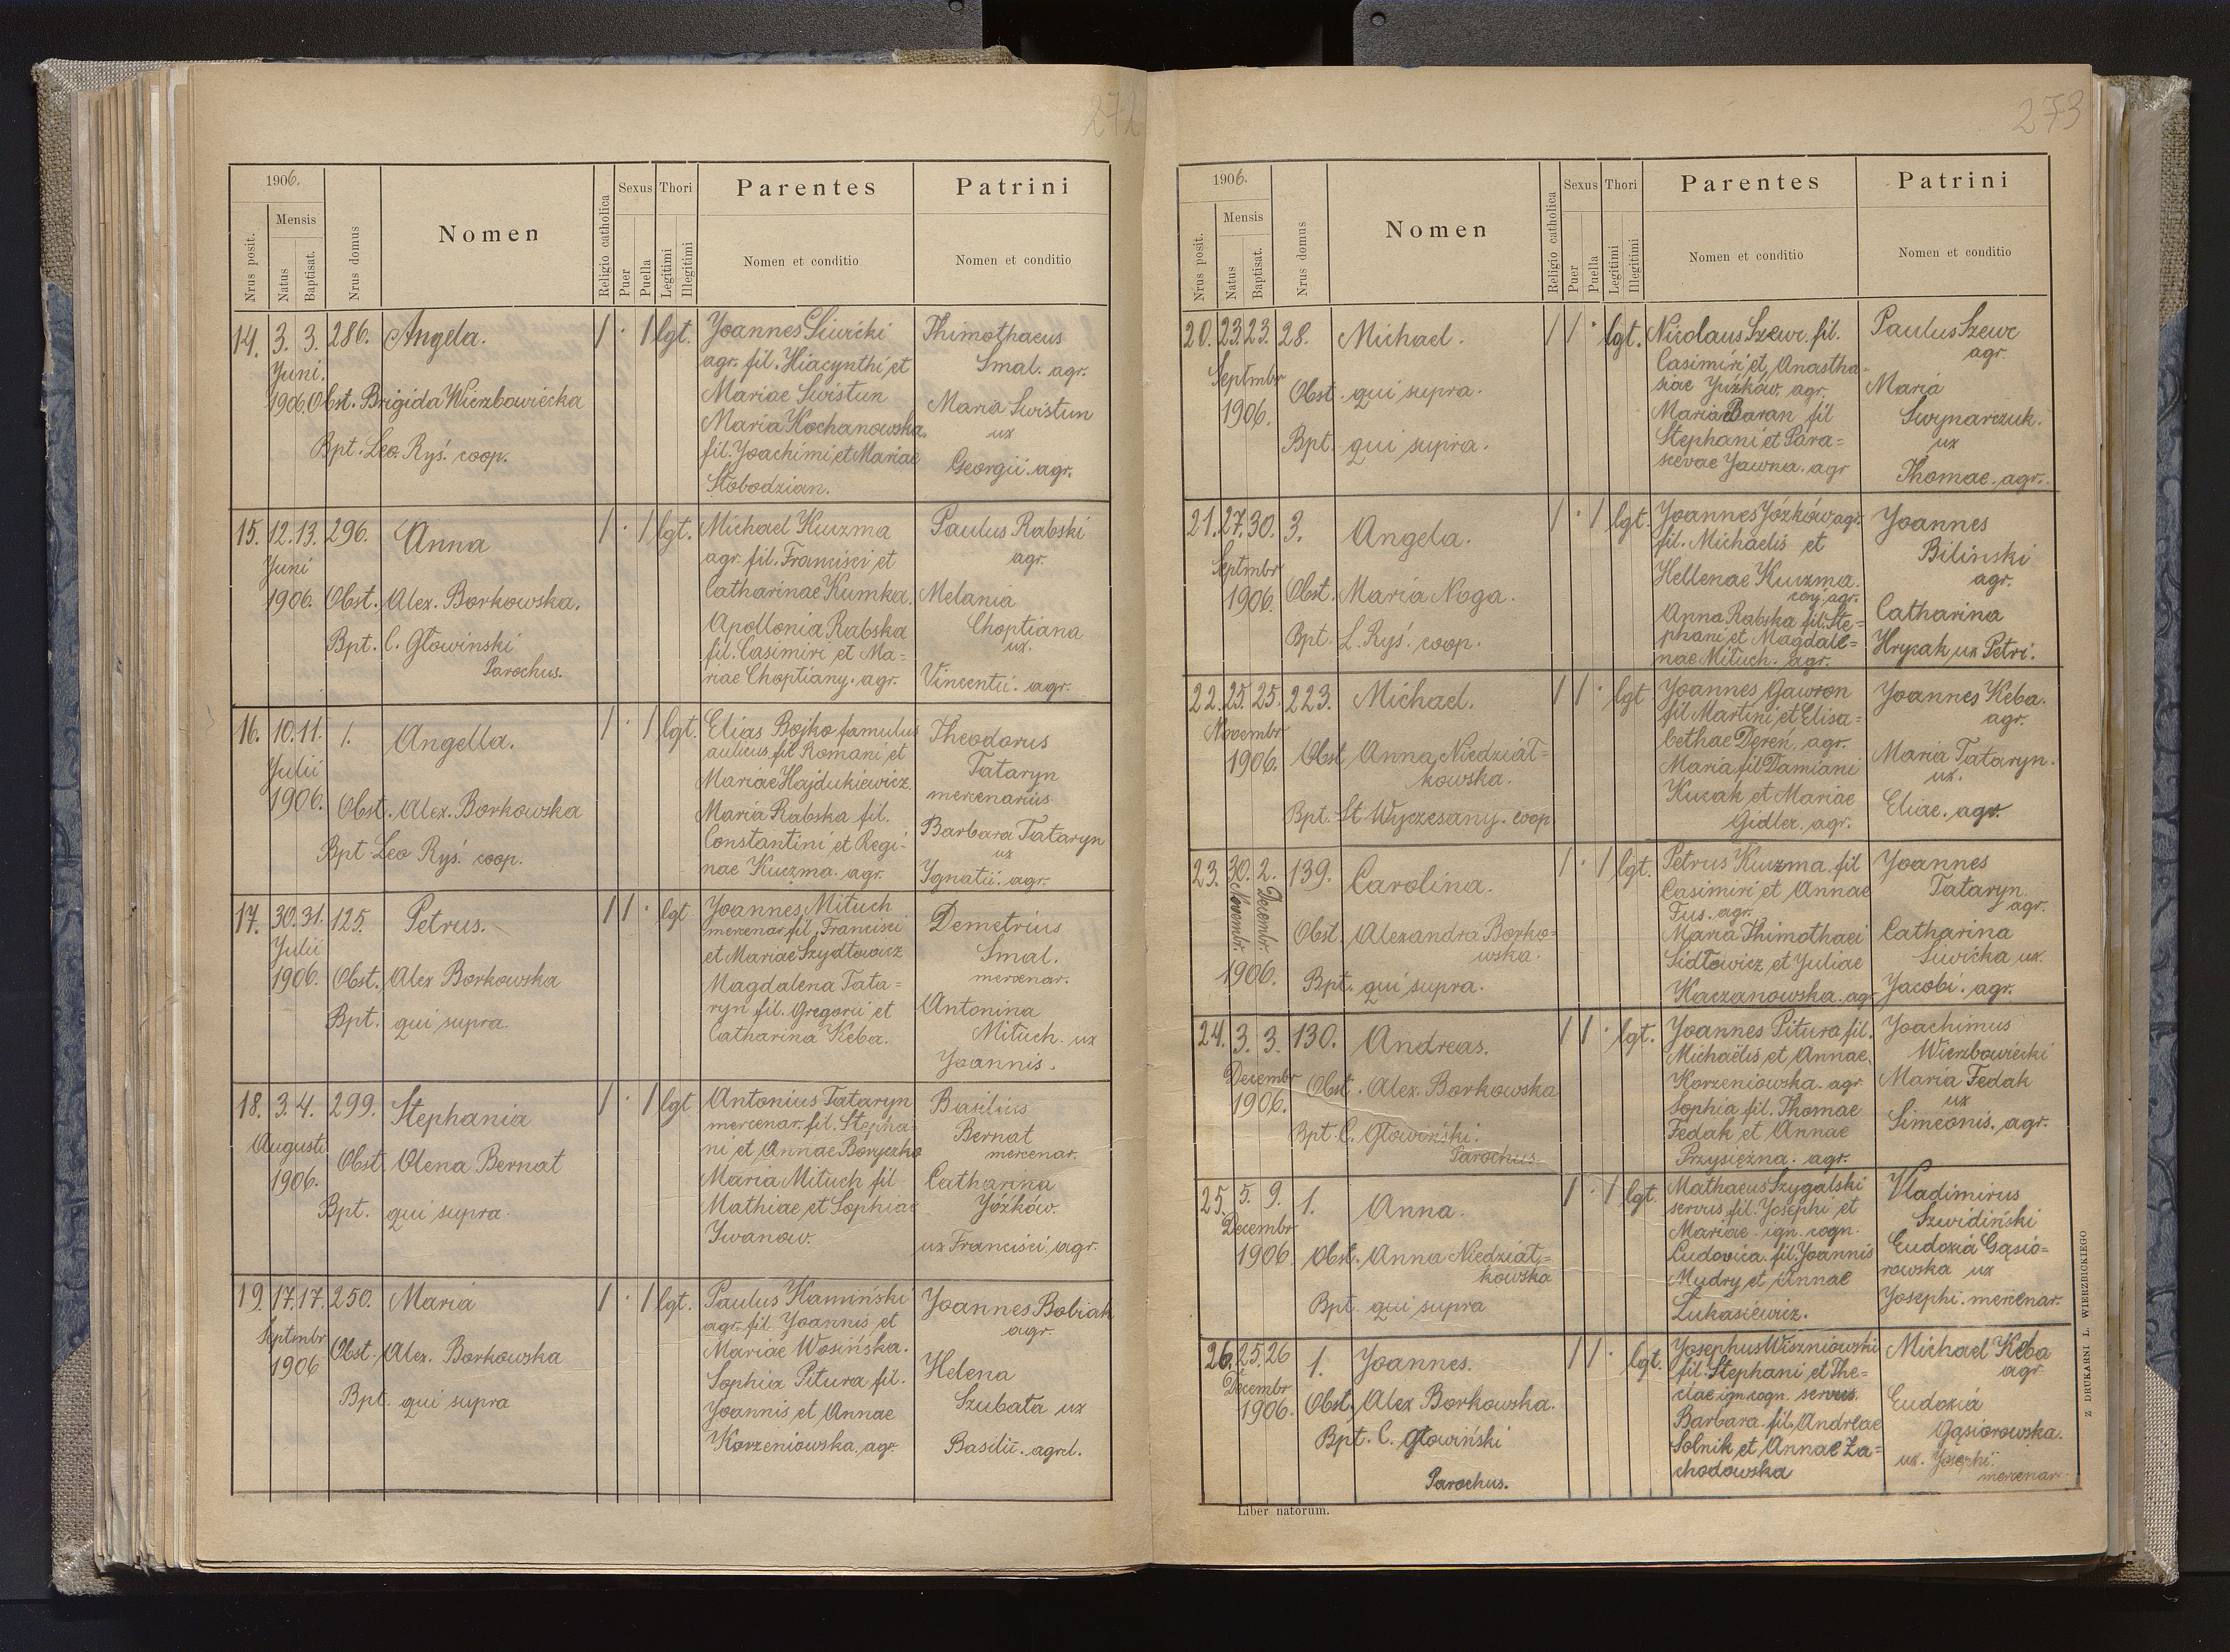 272
1906.
Nrus posit.
Mensis
Natus
Baptisat.
Nrus domus
Nomen
Religio catholica
Sexus
Puer
Puella
Thori
Legitimi
Illegitimi
Parentes
Nomen et conditio
Patrini
Nomen et conditio
14. 3. 3. 286. Angela. / · / lgt.
Juni.
1906. Obst. Brigida Wierzbowiecka
Bpt. Leo. Ryś. coop.
Joannes Siwicki
agr. fil. Hiacynthi et
Mariae Swistun
Maria Kochanowska.
fil. Joachimi et Mariae
Słobodzian.
Thimothaeus
Smal. agr.
Maria Swistun
ux
Georgii. agr.
15. 12. 13. 296. Anna / · / lgt.
Juni
1906. Obst. Alex. Borkowska.
Bpt. C. Głowinski
Parochus.
Michael Kuczma
agr. fil. Francisci et
Catharinae Kumka.
Apollonia Rabska
fil. Casimiri et Ma=
riae Choptiany. agr.
Paulus Rabski
agr.
Melania
Choptiana
ux.
Vincentii. agr.
16. 10. 11. 1. Angella. / · / lgt.
Julii
1906. Obst. Alex. Borkowska
Bpt. Leo Ryś. coop.
Elias Bojko famulus
aulicus fil. Romani et
Mariae Hajdukiewicz.
Maria Rabska fil.
Constantini et Regi-
nae Kuczma. agr.
Theodorus
Tataryn
mercenarius
Barbara Tataryn
ux
Ignatii. agr.
17. 30. 31. 125. Petrus. / / · lgt
Julii
1906. Obst. Alex Borkowska
Bpt. qui supra.
Joannes Mituch
mercenar. fil. Francisci
et Mariae Szydłowicz
Magdalena Tata=
ryn fil. Gregorii et
Catharina Keba.
Demetrius
Smal.
mercenar.
Antonina
Mituch. ux
Joannis.
18. 3. 4. 299. Stephania / · / lgt
Augusti
1906. Obst. Olena Bernat
Bpt. qui supra.
Antonius Tataryn
mercenar. fil. Stepha-
ni et Annae Boryczko
Maria Mituch fil
Mathiae et Sophiae
Iwanow.
Basilius
Bernat
mercenar.
Catharina
Józków.
ux Francisci. agr.
19. 17. 17. 250. Maria / · / lgt.
Septmbr
1906 Obst. Alex. Borkowska
Bpt. qui supra
Paulus Kamiński
agr. fil. Joannis et
Mariae Wosińska.
Sophia Pitura fil.
Joannis et Annae
Korzeniowska. agr.
Joannes Bobiak
agr.
Helena
Szubata ux
Basilii. agrcl.
273
1906.
Nrus posit.
Mensis
Natus
Baptisat.
Nrus domus
Nomen
Religio catholica
Sexus
Puer
Puella
Thori
Legitimi
Illegitimi
Parentes
Nomen et conditio
Patrini
Nomen et conditio
20. 23. 23. 28. Michael. / / · lgt.
Septmbr
1906. Obst. qui supra.
Bpt. qui supra.
Nicolaus Szewc. fil.
Casimiri et Anastha=
siae Józków. agr.
Maria Baran fil
Stephani et Para=
scevae Jawna. agr
Paulus Szewc
agr.
Maria
Swynarczuk.
ux
Thomae. agr.
21. 27. 30. 3. Angela. / · / lgt.
Septmbr
1906. Obst. Maria Noga.
Bpt. L. Ryś. coop.
Joannes Józków agr.
fil. Michaelis et
Hellenae Kuczma.
conj. agr.
Anna Rabska fil. Ste=
phani et Magdale=
nae Mituch. agr.
Joannes
Bilinski
agr.
Catharina
Hrycak ux Petri.
22. 25. 25. 223. Michael. / / · lgt
Novembr
1906. Obst Anna Niedział=
kowska.
Bpt. St Wyczesany. coop
Joannes Gawron
fil Martini et Elisa=
bethae Dereń. agr.
Maria fil Damiani
Kucak et Mariae
Gidler. agr.
Joannes Keba.
agr.
Maria Tataryn.
ux.
Eliae. agr.
23. 30. 2. 139. Carolina. / · / lgt.
Novembr.
Decembr.
1906. Obst. Alexandra Borko=
wska.
Bpt. qui supra.
Petrus Kuczma. fil
Casimiri et Annae
Fus. agr.
Maria Thimothaei
Sidłowicz et Juliae
Kaczanowska. agr
Joannes
Tataryn
agr.
Catharina
Siwicka ux.
Jacobi. agr.
24. 3. 3. 130. Andreas. / / · lgt.
Decembr
1906. Obst. Alex. Borkowska
Bpt. C. Głowiński.
Parochus
Joannes Pitura fil.
Michaëlis et Annae
Korzeniowska. agr
Sophia fil. Thomae
Fedak et Annae
Przysiężna. agr.
Joachimus
Wierzbowiecki
Maria Fedak
ux
Simeonis. agr.
25. 5. 9. 1. Anna. / · / lgt.
Decembr
1906 Obst. Anna Niedział=
kowska
Bpt. qui supra
Mathaeus Szygalski
servus fil. Josephi et
Mariae. ign. cogn.
Ludovica. fil. Joannis
Mudry et Annae
Łukasiewicz.
Vladimirus
Szwidiński
Eudoxia Gąsio=
rowska ux
Josephi. mercenar.
26. 25. 26 1. Joannes. / / · lgt.
Decembr
1906. Obst. Alex Borkowska.
Bpt. C. Głowiński
Parochus.
Josephus Wiszniowski
fil. Stephani et The=
clae ign cogn. servus.
Barbara. fil. Andreae
Solnik et Annae Za=
chodowska
Michael Keba
agr.
Eudoxia
Gąsiorowska.
ux. Josephi.
mercenar
Liber natorum.
Z DRUKARNI L. WIERZBICKIEGO